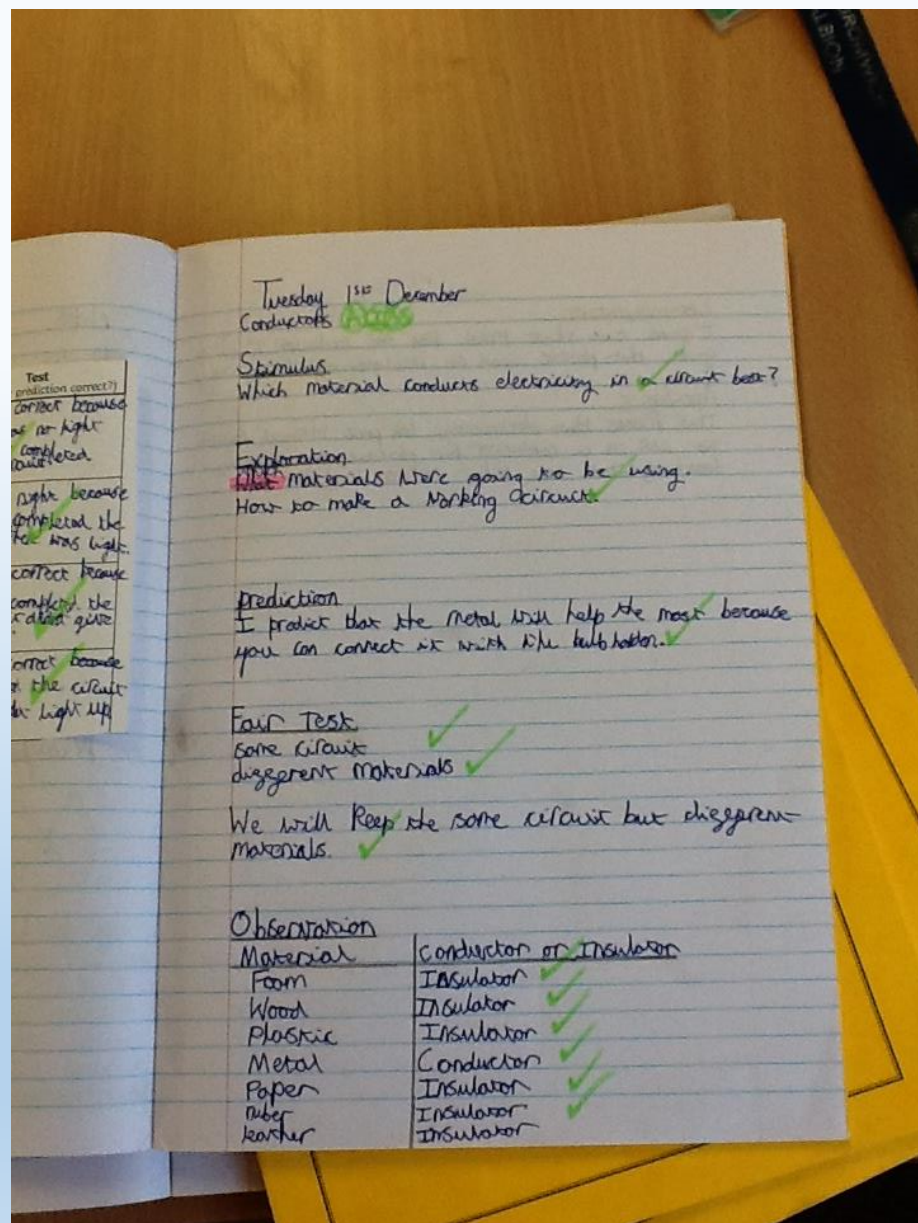 Test
prediction correct?)
correct because
as no light
completed
right because
completed the
was light.
correct because
the
give
because
the circuit
light up
Tuesday 1st December
Conductors
Stimulus
Which material conducts electricity in a circuit best?
Exploration
What materials were going to be using.
How to make a working circuit.
prediction
I predict that the metal will help the most because
you can connect it with the bulb holder.
Fair Test
same circuit
different materials
We will keep the same circuit but different
materials.
Observation
Material Conductor or Insulator
Foam Insulator
Wood Insulator
Plastic Insulator
Metal Conductor
Paper Insulator
Insulator
leather Insulator
ALBION